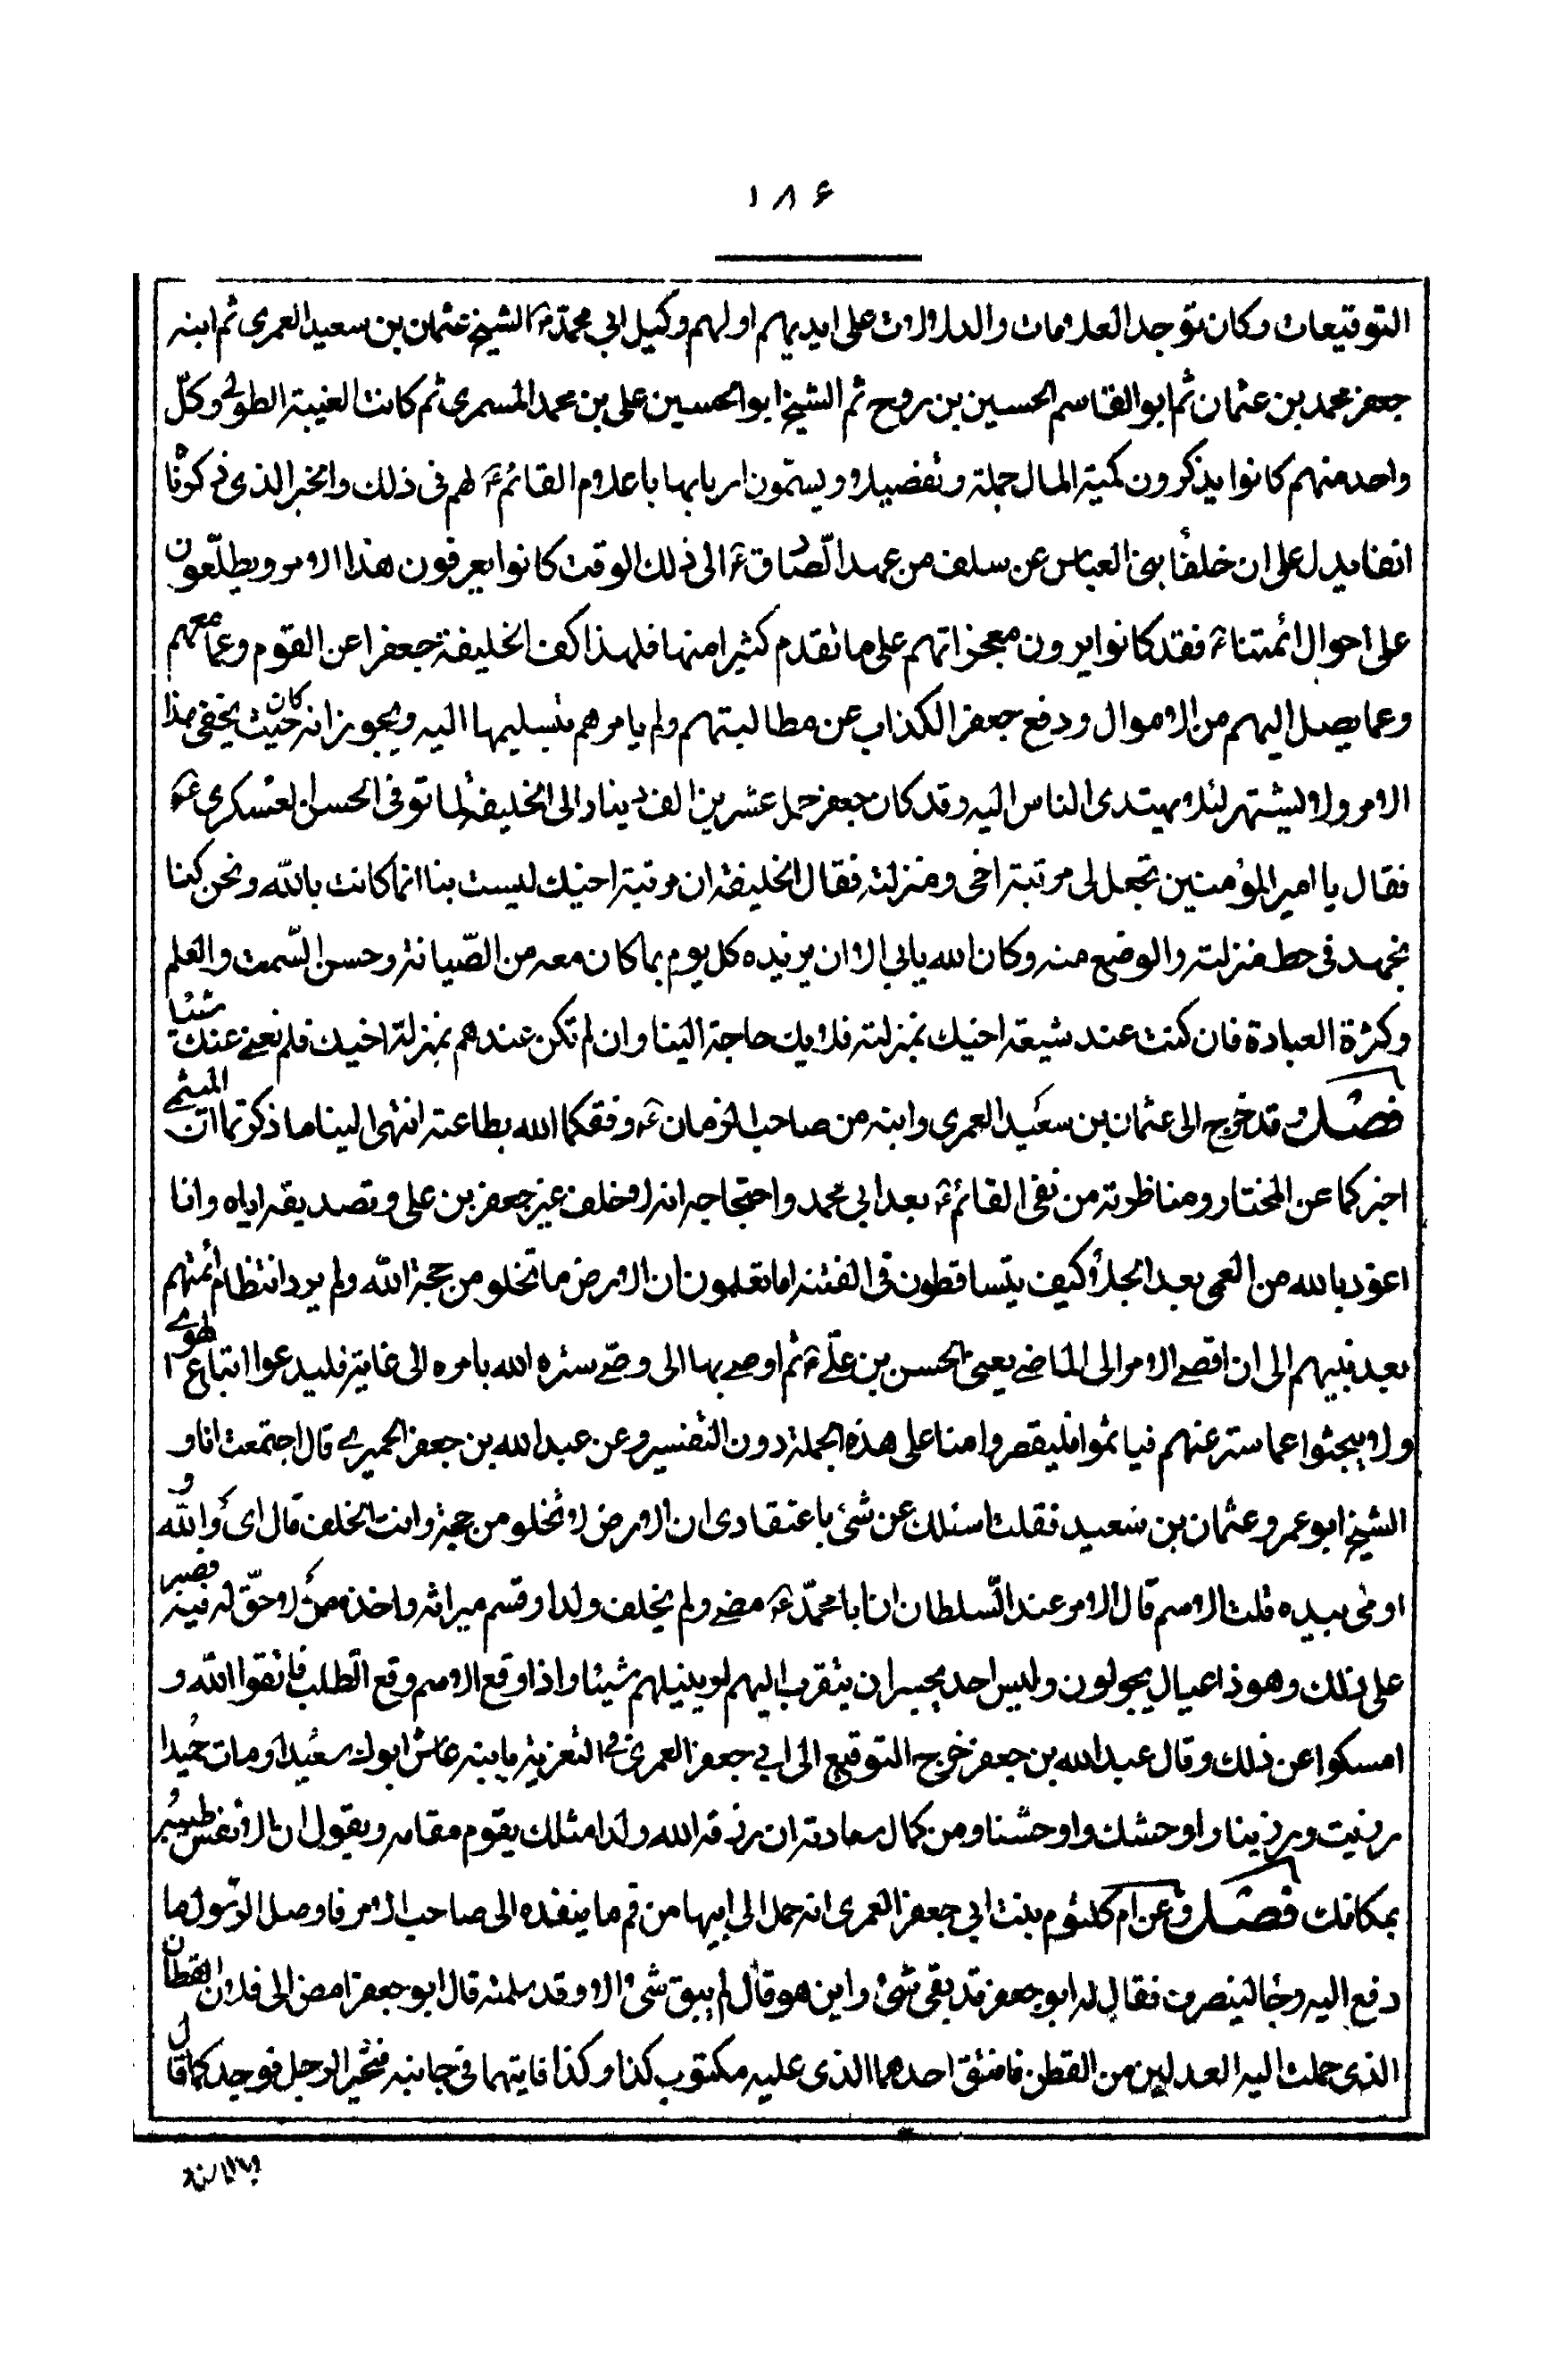 ۱۸۶
التوقيعات وكان توجد العلامات والدلالات على ايديهم اولهم وكيل ابي محمد ع الشيخ عثمان بن سعيد العمرى ثم ابنه
جعفر محمد بن عثمان ثم ابو القاسم الحسين بن روح ثم الشيخ ابو الحسين على بن محمد السمرى ثم كانت الغيبة الطولى وكلّ
واحد منهم كانوا يذكرون كمية المال جملة وتفضيلا ويسمّون اربابها باعلام القائم ع لهم فى ذلك والخبر الذى ذكرنا
انفا يدل على ان خلفاء بنى العباس عن سلف من عهد الصّادق ع الى ذلك الوقت كانوا يعرفون هذا الامر ويطلّعون
على احوال ائمتنا ع فقد كانوا يرون معجزاتهم على ما تقدم كثيرا منها فلهذا كف الخليفة جعفرا عن القوم وعما معهم
وعما يصل اليهم من الاموال ودفع جعفر الكذاب عن مطالبتهم ولم يامرهم بتسليمها اليه ويجوز انه كان حيث يخفى هذا
الامر ولا يشتهر لئلا يهتدى الناس اليه وقد كان جعفر حمل عشرين الف دينار الى الخليفة لما توفى الحسن العسكرى ع
فقال يا امير المؤمنين تجعل لى مرتبة اخى ومنزلته فقال الخليفة ان مرتبة اخيك ليست بنا انما كانت بالله ونحن كنا
نجهد فى حط منزلته والوضع منه وكان الله يابى الا ان يزيده كل يوم بما كان معه من الصّيانة وحسن السّمت والعلم
وكثرة العبادة فان كنت عند شيعة اخيك بمنزلته فلا بك حاجة الينا وان لم تكن عندهم بمنزلة اخيك فلم نغن عنك شيئا
فصل وقد خرج الى عثمان بن سعيد العمرى وابنه من صاحب الزمان ع وفقكما الله بطاعته انتهى الينا ما ذكرتما ان الميثمى
اخبركما عن المختار ومناظرته من نفى القائم ع بعد ابي محمد واحتجاجه انه لا خلف غير جعفر بن على وتصديقه اياه وانا
اعوذ بالله من العمى بعد الجلاء وكيف يتساقطون فى الفتنه اما تعلمون ان الارض ما تخلو من حجة الله ولم يرد انتظام ائمتهم
بعد نبيهم الى ان افضى الامر الى الماضى يعنى الحسن بن علىّ ع ثم اوصى بها الى وصىّ ستره الله بامره الى غاية فليدعوا اتباع الهوى
ولا يبحثوا عما ستر عنهم فياثموا فليقصروا منا على هذه الجملة دون التفسير وعن عبد الله بن جعفر الحميرى قال اجتمعت انا و
الشيخ ابو عمرو عثمان بن سعيد فقلت اسئلك عن شئ باعتقادى ان الارض لا تخلو من حجة وانت الخلف قال اى والله و
اومى بيده قلت الاسم قال الامر عند السّلطان ان ابا محمّد ع مضى ولم يخلف ولدا وقسم ميراثه واخذه من لا حقّ له فيه فصبر
على ذلك وهو ذا عيال يجولون وليس احد يجسر ان يتقرب اليهم لو ينيلهم شيئا واذا وقع الاسم وقع الطّلب فاتقوا الله و
امسكوا عن ذلك وقال عبد الله بن جعفر خرج التوقيع الى ابى جعفر العمرى فى التعزية بابيه عاش ابوك سعيدا ومات حميدا
رزيت ورزينا واوحشك واوحشنا ومن كمال سعادته ان رزقه الله ولدا مثلك يقوم مقامه ويقول ان الانفس طيبة
بمكانك فصل وعن ام كلثوم بنت ابى جعفر العمرى انه حمل الى ابيها من قم ما ينفذه الى صاحب الامر فاوصل الرّسول ما
دفع اليه وجاء لينصرف فقال له ابو جعفر قد بقى شئ واين هو قال لم يبق شئ الا وقد سلمته قال ابو جعفر امض الى فلان القطان
الذى حملت اليه العدلين من القطن فافتق احدهما الذى عليه مكتوب كذا وكذا فانهما فى جانبه فتحير الرجل فوجد كما قال